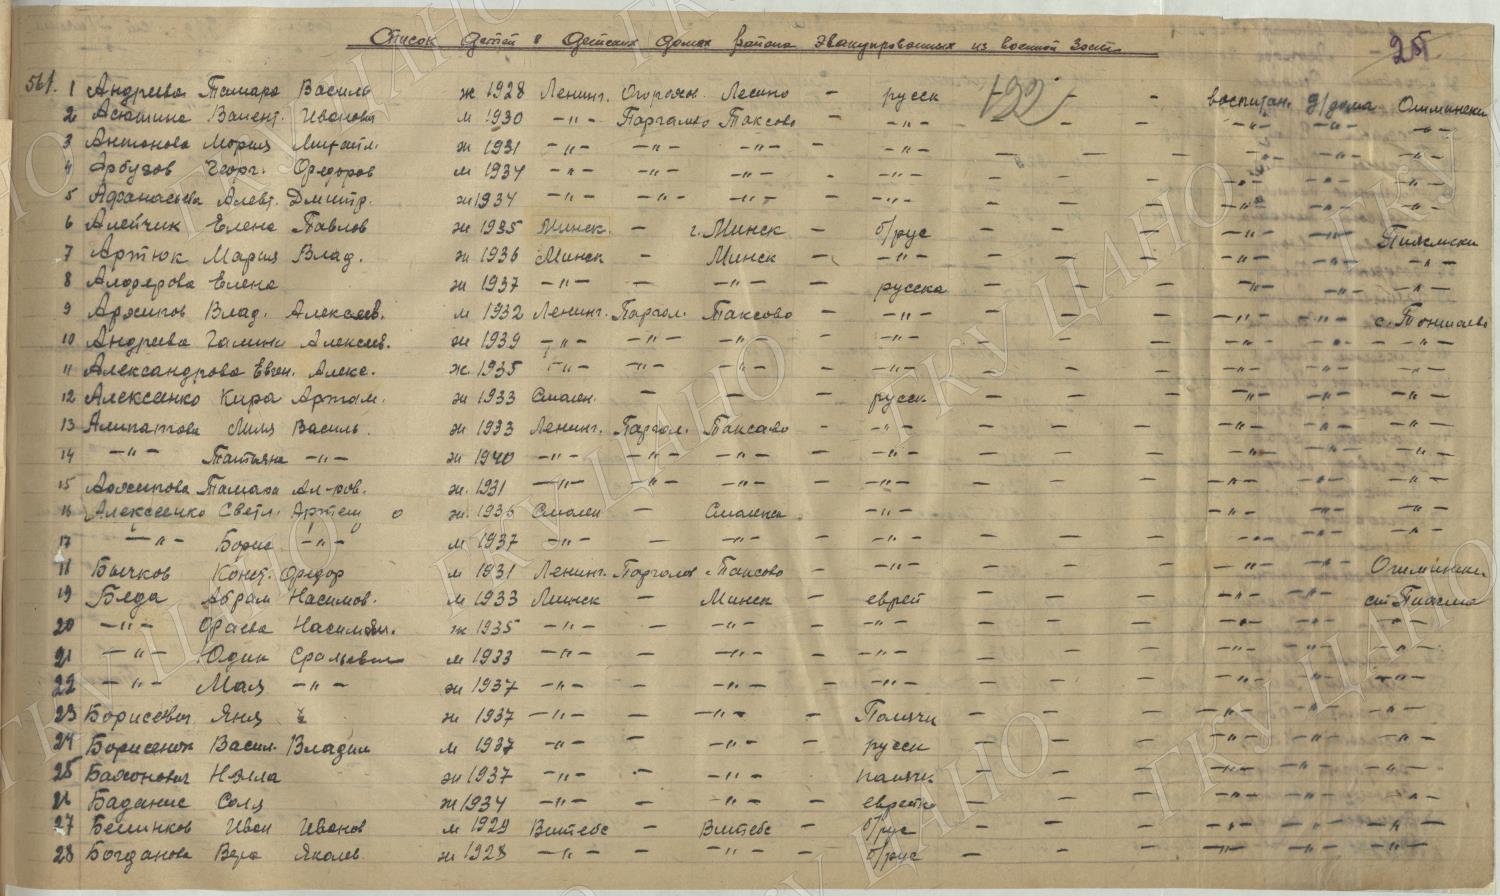 Список детей в детских домах района эвакуированных из военной зоны
25
122
561. 1 Андреева Тамара Василь ж 1928 Ленинг. Лесино - русск - - воспитан. д/дома
2 Асюшина Валент. Иванова м 1930 -"- Парголово Таксово - -"- - - - -"- -"- -"-
3 Антонова Мария Михайл. ж 1931 -"- -"- -"- - -"- - - - -"- -"- -"-
4 Арбузов Георг. Федоров м 1934 -"- -"- -"- - -"- - - - -"- -"- -"-
5 Афанасьева Алевт. Дмитр. ж 1934 -"- -"- -"- - -"- - - - -"- -"- -"-
6 Алейчик Елена Павлов ж 1935 Минск. - г. Минск - б/рус - - - -"- -"-
7 Артюк Мария Влад. ж 1936 Минск - Минск - -"- - - - -"- -"- -"-
8 Алферова Елена ж 1937 -"- - -"- - русска - - - -"- -"- -"-
9 Архипов Влад. Алексеев. м 1932 Ленинг. Паргол. Таксово - -"- - - - -"- -"- с. Тоншаево
10 Андреева Галина Алексеев. ж 1939 -"- -"- -"- - -"- - - - -"- -"- -"-
11 Александрова Евген. Алекс. ж 1935 -"- -"- -"- - -"- - - - -"- -"- -"-
12 Алексеенко Кира Артам. ж 1933 Смолен. - - - русск - - - -"- -"- -"-
13 Алипатова Лиля Василь. ж 1933 Ленинг. Паргол. Таксово - -"- - - - -"- -"- -"-
14 -"- Татьяна -"- ж 1940 -"- -"- -"- - -"- - - - -"- -"- -"-
15 Архипова Тамара Ал-ров. ж 1931 -"- -"- -"- - -"- - - - -"- -"- -"-
16 Алексеенко Светл. Артем ж. 1936 Смолен - Смоленск -"- - - - -"- -"- -"-
17 -"- Борис -"- м 1937 -"- - -"- - -"- - - - -"- -"- -"-
18 Бычков Конст. Федор м 1931 Ленинг. Парголов Таксово - -"- - - - -"- -"-
19 Беда Абрам Насимов. м 1933 Минск - Минск - еврей - - - -"- -"- ст. Пижма
20 -"- Насимовн. ж 1935 -"- - -"- - -"- - - - -"- -"- -"-
21 -"- Юдик м 1933 -"- - -"- - -"- - - - -"- -"- -"-
22 -"- Мая -"- ж 1937 -"- - -"- - -"- - - - -"- -"- -"-
23 Борисевич Яня ж 1937 -"- - -"- - Полячк - - - -"- -"- -"-
24 Борисенок Васил. Владим м 1937 -"- - -"- - русск - - - -"- -"- -"-
25 Нэлла ж 1937 -"- - -"- - полячк - - - -"- -"- -"-
26 Баданис Соля ж 1934 -"- - -"- - еврейка - - - -"- -"- -"-
27 Белинков Иван Иванов м 1929 Витебс - Витебс - б/рус - - - -"- -"- -"-
28 Богданова Вера Яковлев ж 1928 -"- - -"- - б/рус - - - -"- -"- -"-
ГКУ ЦАНО